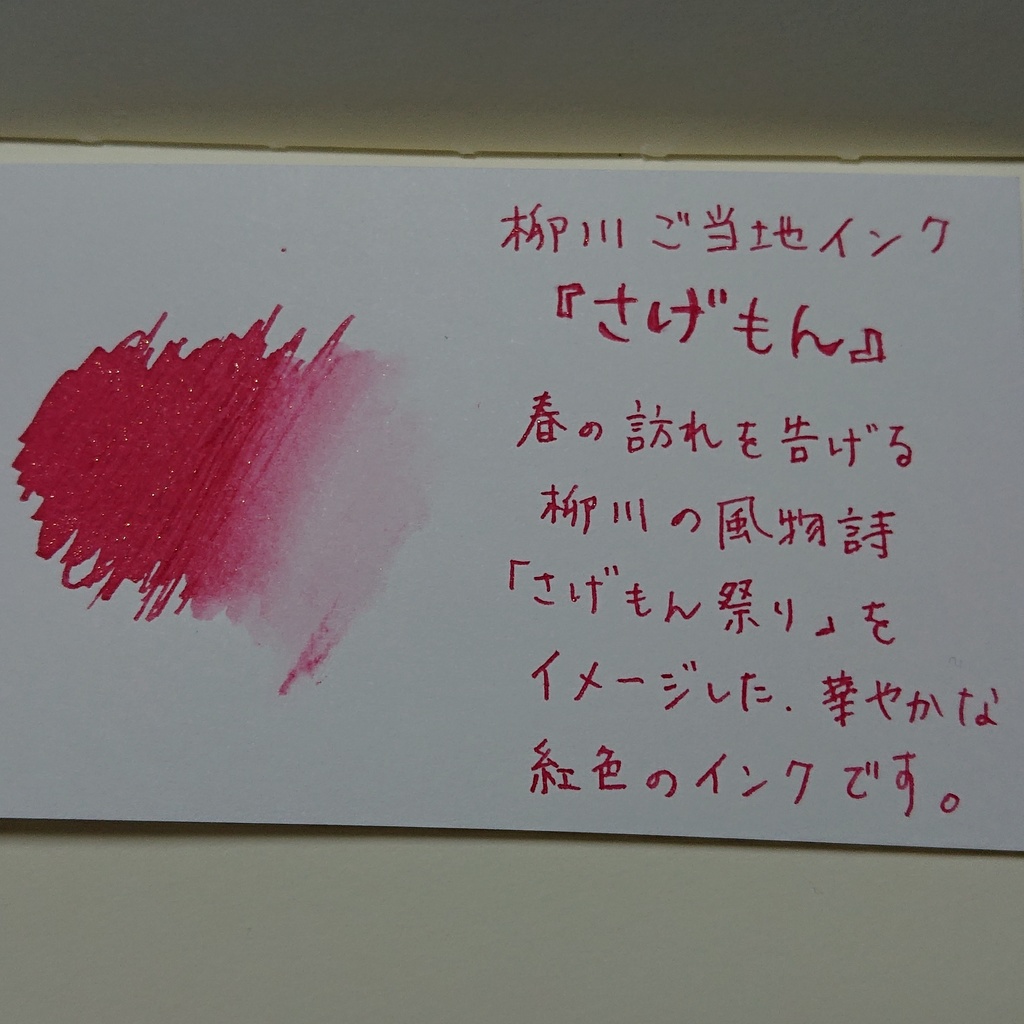 柳川ご当地インク
『さげもん』
春の訪れを告げる
柳川の風物詩
「さげもん祭り」を
イメージした、華やかな
紅色のインクです。